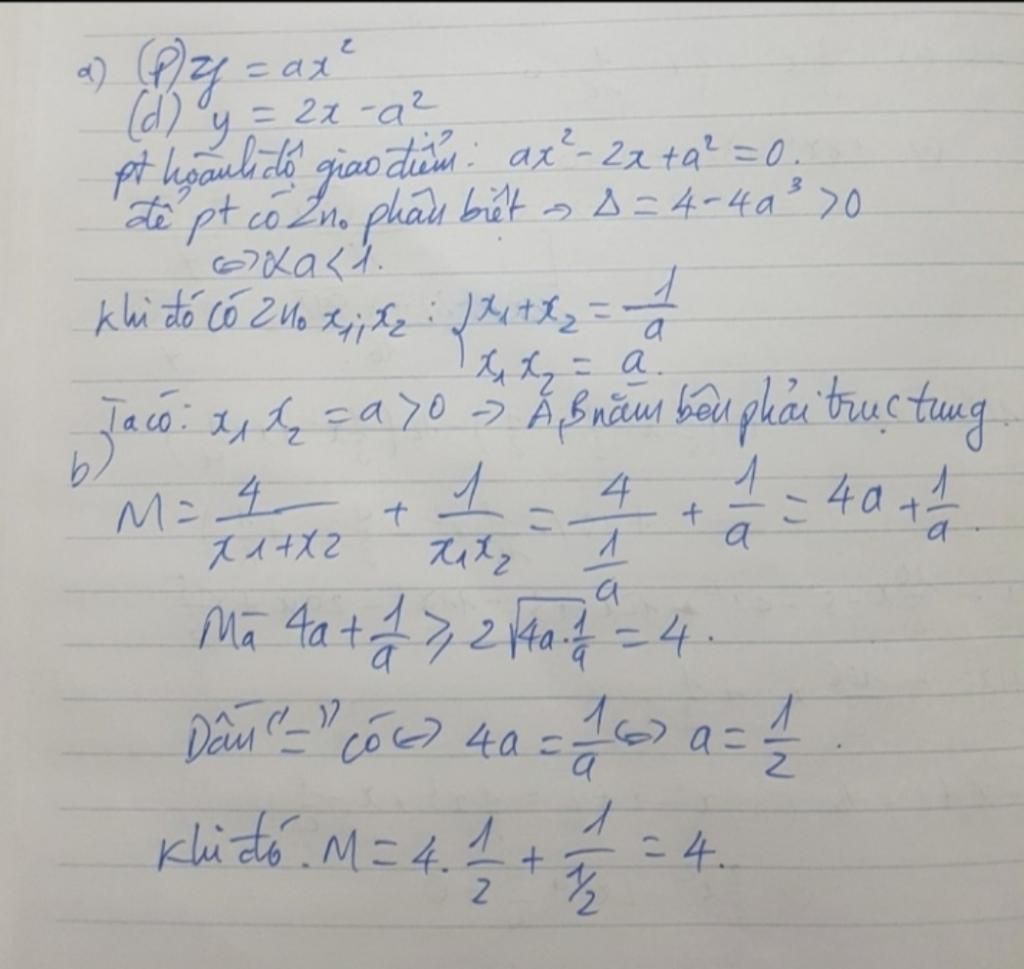 a) (P) y = ax²
(d) y = 2x - a²
pt hoành độ giao điểm: ax² - 2x + a² = 0.
để pt có 2 no phân biệt → Δ = 4 - 4a³ > 0
⇔ 0<a<1.
Khi đó có 2 no x₁; x₂ : { x₁ + x₂ = 1/a
x₁ x₂ = a.
Ta có: x₁ x₂ = a > 0 → A, B nằm bên phải trục tung
b)
M = 4/(x1+x2) + 1/(x₁x₂) = 4/(1/a) + 1/a = 4a + 1/a.
Mà 4a + 1/a ≥ 2√(4a·1/a) = 4.
Dấu "=" có ⇔ 4a = 1/a ⇔ a = 1/2.
Khi đó. M = 4. 1/2 + 1/(1/2) = 4.